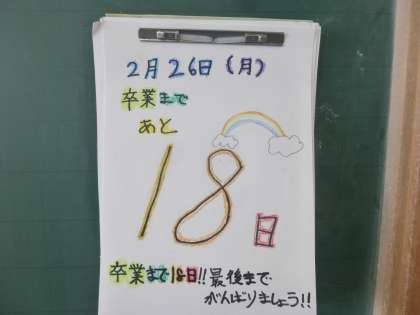 2月26日(月)
卒業まで
あと
18日
卒業まで18日!!最後まで
がんばりましょう!!